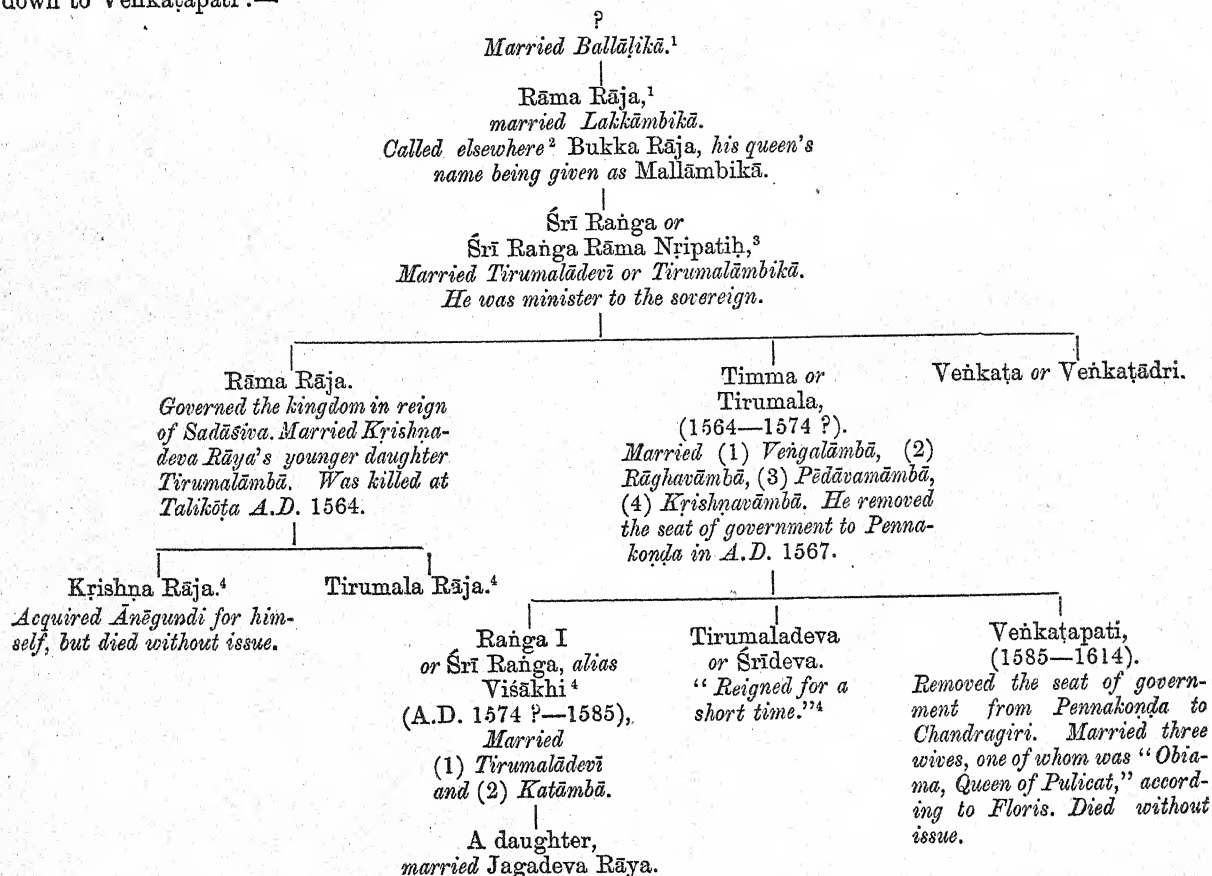 down to Veṅkaṭapati :—
?
Married Ballāḷikā.¹
Rāma Rāja,¹
married Lakkāmbikā.
Called elsewhere ² Bukka Rāja, his queen's
name being given as Mallāmbikā.
Śrī Raṅga or
Śrī Raṅga Rāma Nṛipatiḥ,³
Married Tirumalādevī or Tirumalāmbikā.
He was minister to the sovereign.
Rāma Rāja.
Governed the kingdom in reign
of Sadāśiva. Married Kṛishṇa-
deva Rāya's younger daughter
Tirumalāmbā. Was killed at
Talikōṭa A.D. 1564.
Timma or
Tirumala,
(1564—1574 ?).
Married (1) Veṅgalāmbā, (2)
Rāghavāmbā, (3) Pēdāvamāmbā,
(4) Kṛishṇavāmbā. He removed
the seat of government to Penna-
koṇḍa in A.D. 1567.
Veṅkaṭa or Veṅkaṭādri.
Kṛishṇa Rāja.⁴
Acquired Ānēgundi for him-
self, but died without issue.
Tirumala Rāja.⁴
Raṅga I
or Śrī Raṅga, alias
Viśākhi ⁴
(A.D. 1574 ?—1585),
Married
(1) Tirumalādevī
and (2) Katāmbā.
A daughter,
married Jagadeva Rāya.
Tirumaladeva
or Śrīdeva.
"Reigned for a
short time."⁴
Veṅkaṭapati,
(1585—1614).
Removed the seat of govern-
ment from Pennakoṇḍa to
Chandragiri. Married three
wives, one of whom was "Obia-
ma, Queen of Pulicat," accord-
ing to Floris. Died without
issue.